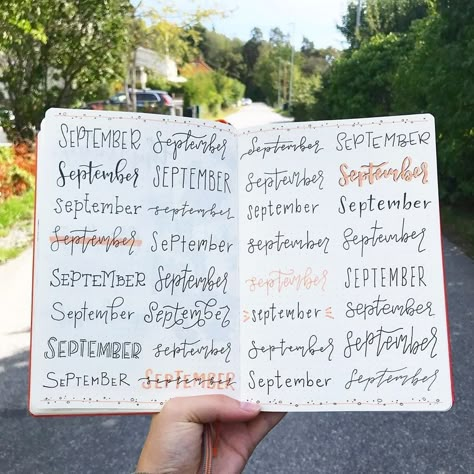 SEPTEMBER September
September SEPTEMBER
September september
September SePTember
SEPTEMBER September
September September
SEPTEMBER september
SEPTEMBER SEPTEMBER september
September SEPTEMBER
September September
september September
September September
September SEPTEMBER
september September
September September
September September